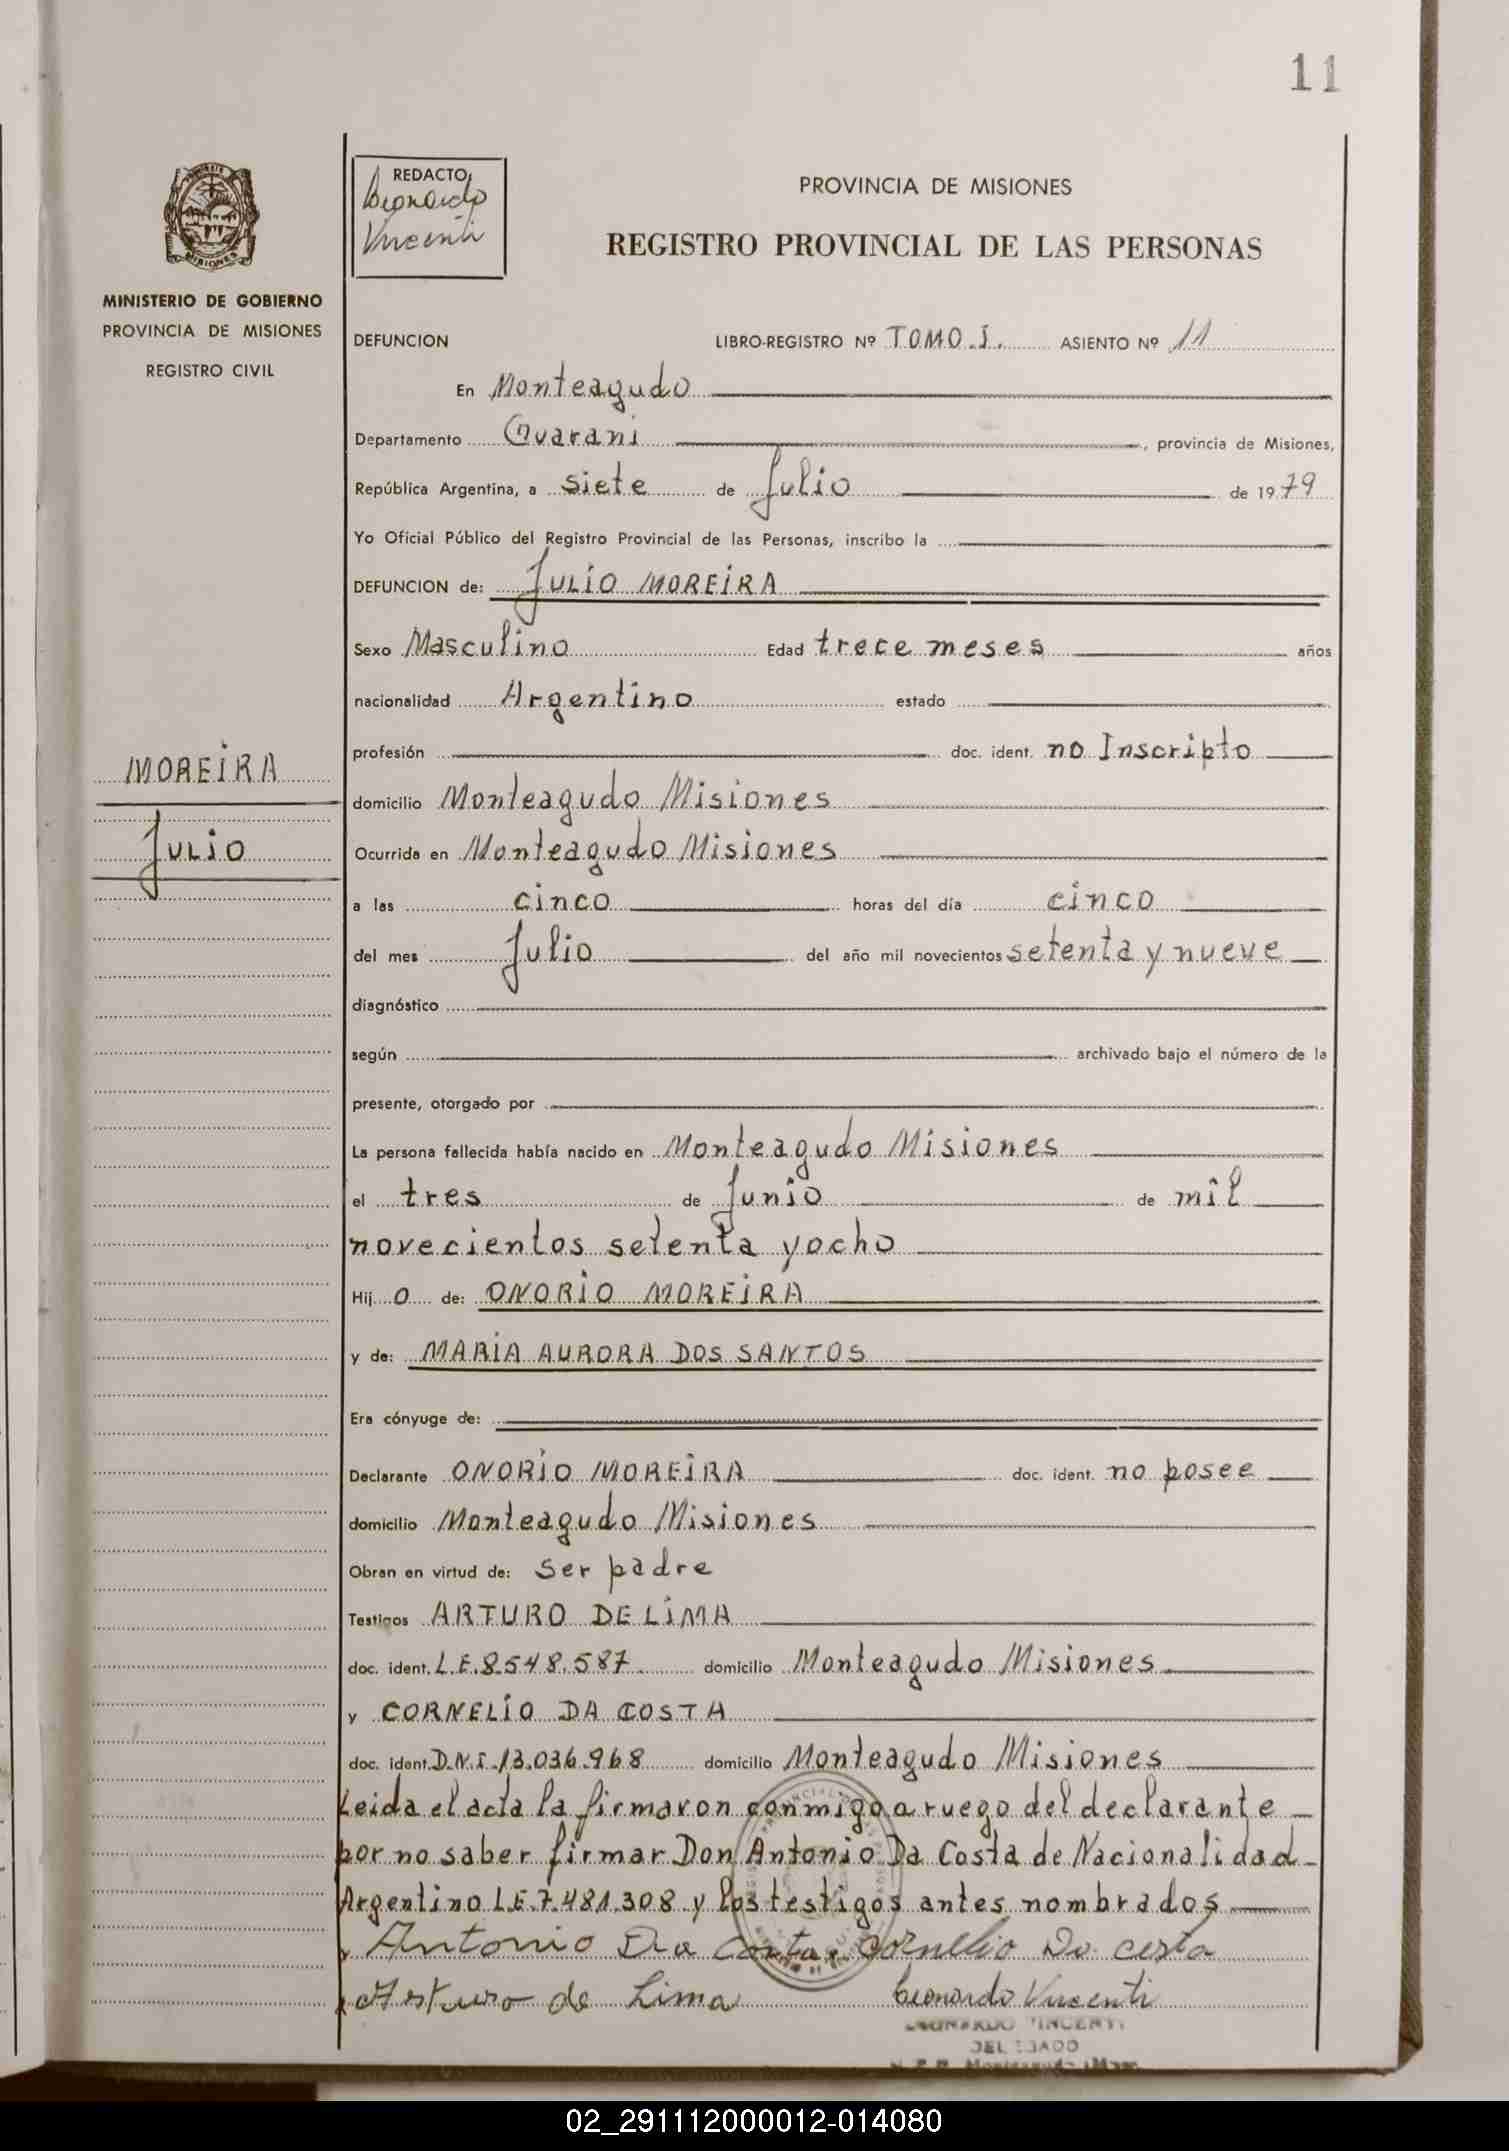 11
MINISTERIO DE GOBIERNO
PROVINCIA DE MISIONES
REGISTRO CIVIL
MOREIRA
JULIO
REDACTO
Leonardo
Vincenti
PROVINCIA DE MISIONES
REGISTRO PROVINCIAL DE LAS PERSONAS
DEFUNCION LIBRO-REGISTRO Nº TOMO.I. ASIENTO Nº 11
En Monteagudo
Departamento Guarani, provincia de Misiones,
República Argentina, a siete de Julio de 1979
Yo Oficial Público del Registro Provincial de las Personas, inscribo la
DEFUNCION de: JULIO MOREIRA
Sexo Masculino Edad trece meses años
nacionalidad Argentino estado
profesión doc. ident. no Inscripto
domicilio Monteagudo Misiones
Ocurrida en Monteagudo Misiones
a las cinco horas del día cinco
del mes Julio del año mil novecientos setenta y nueve
diagnóstico
según archivado bajo el número de la
presente, otorgado por
La persona fallecida había nacido en Monteagudo Misiones
el tres de Junio de mil
novecientos setenta y ocho
Hij o de: ONORIO MOREIRA
y de: MARIA AURORA DOS SANTOS
Era cónyuge de:
Declarante ONORIO MOREIRA doc. ident. no posee
domicilio Monteagudo Misiones
Obran en virtud de: ser padre
Testigos ARTURO DE LIMA
doc. ident. L.E.8.548.587 domicilio Monteagudo Misiones
y CORNELIO DA COSTA
doc. ident. D.N.I.13.036.968 domicilio Monteagudo Misiones
Leida el acta la firmaron conmigo a ruego del declarante
por no saber firmar Don Antonio Da Costa de Nacionalidad
Argentino L.E.7.481.308 y los testigos antes nombrados
Antonio Da Costa Cornelio Da costa
Arturo de Lima Leonardo Vincenti
LEONARDO VINCENTI
DELEGADO
02_291112000012-014080